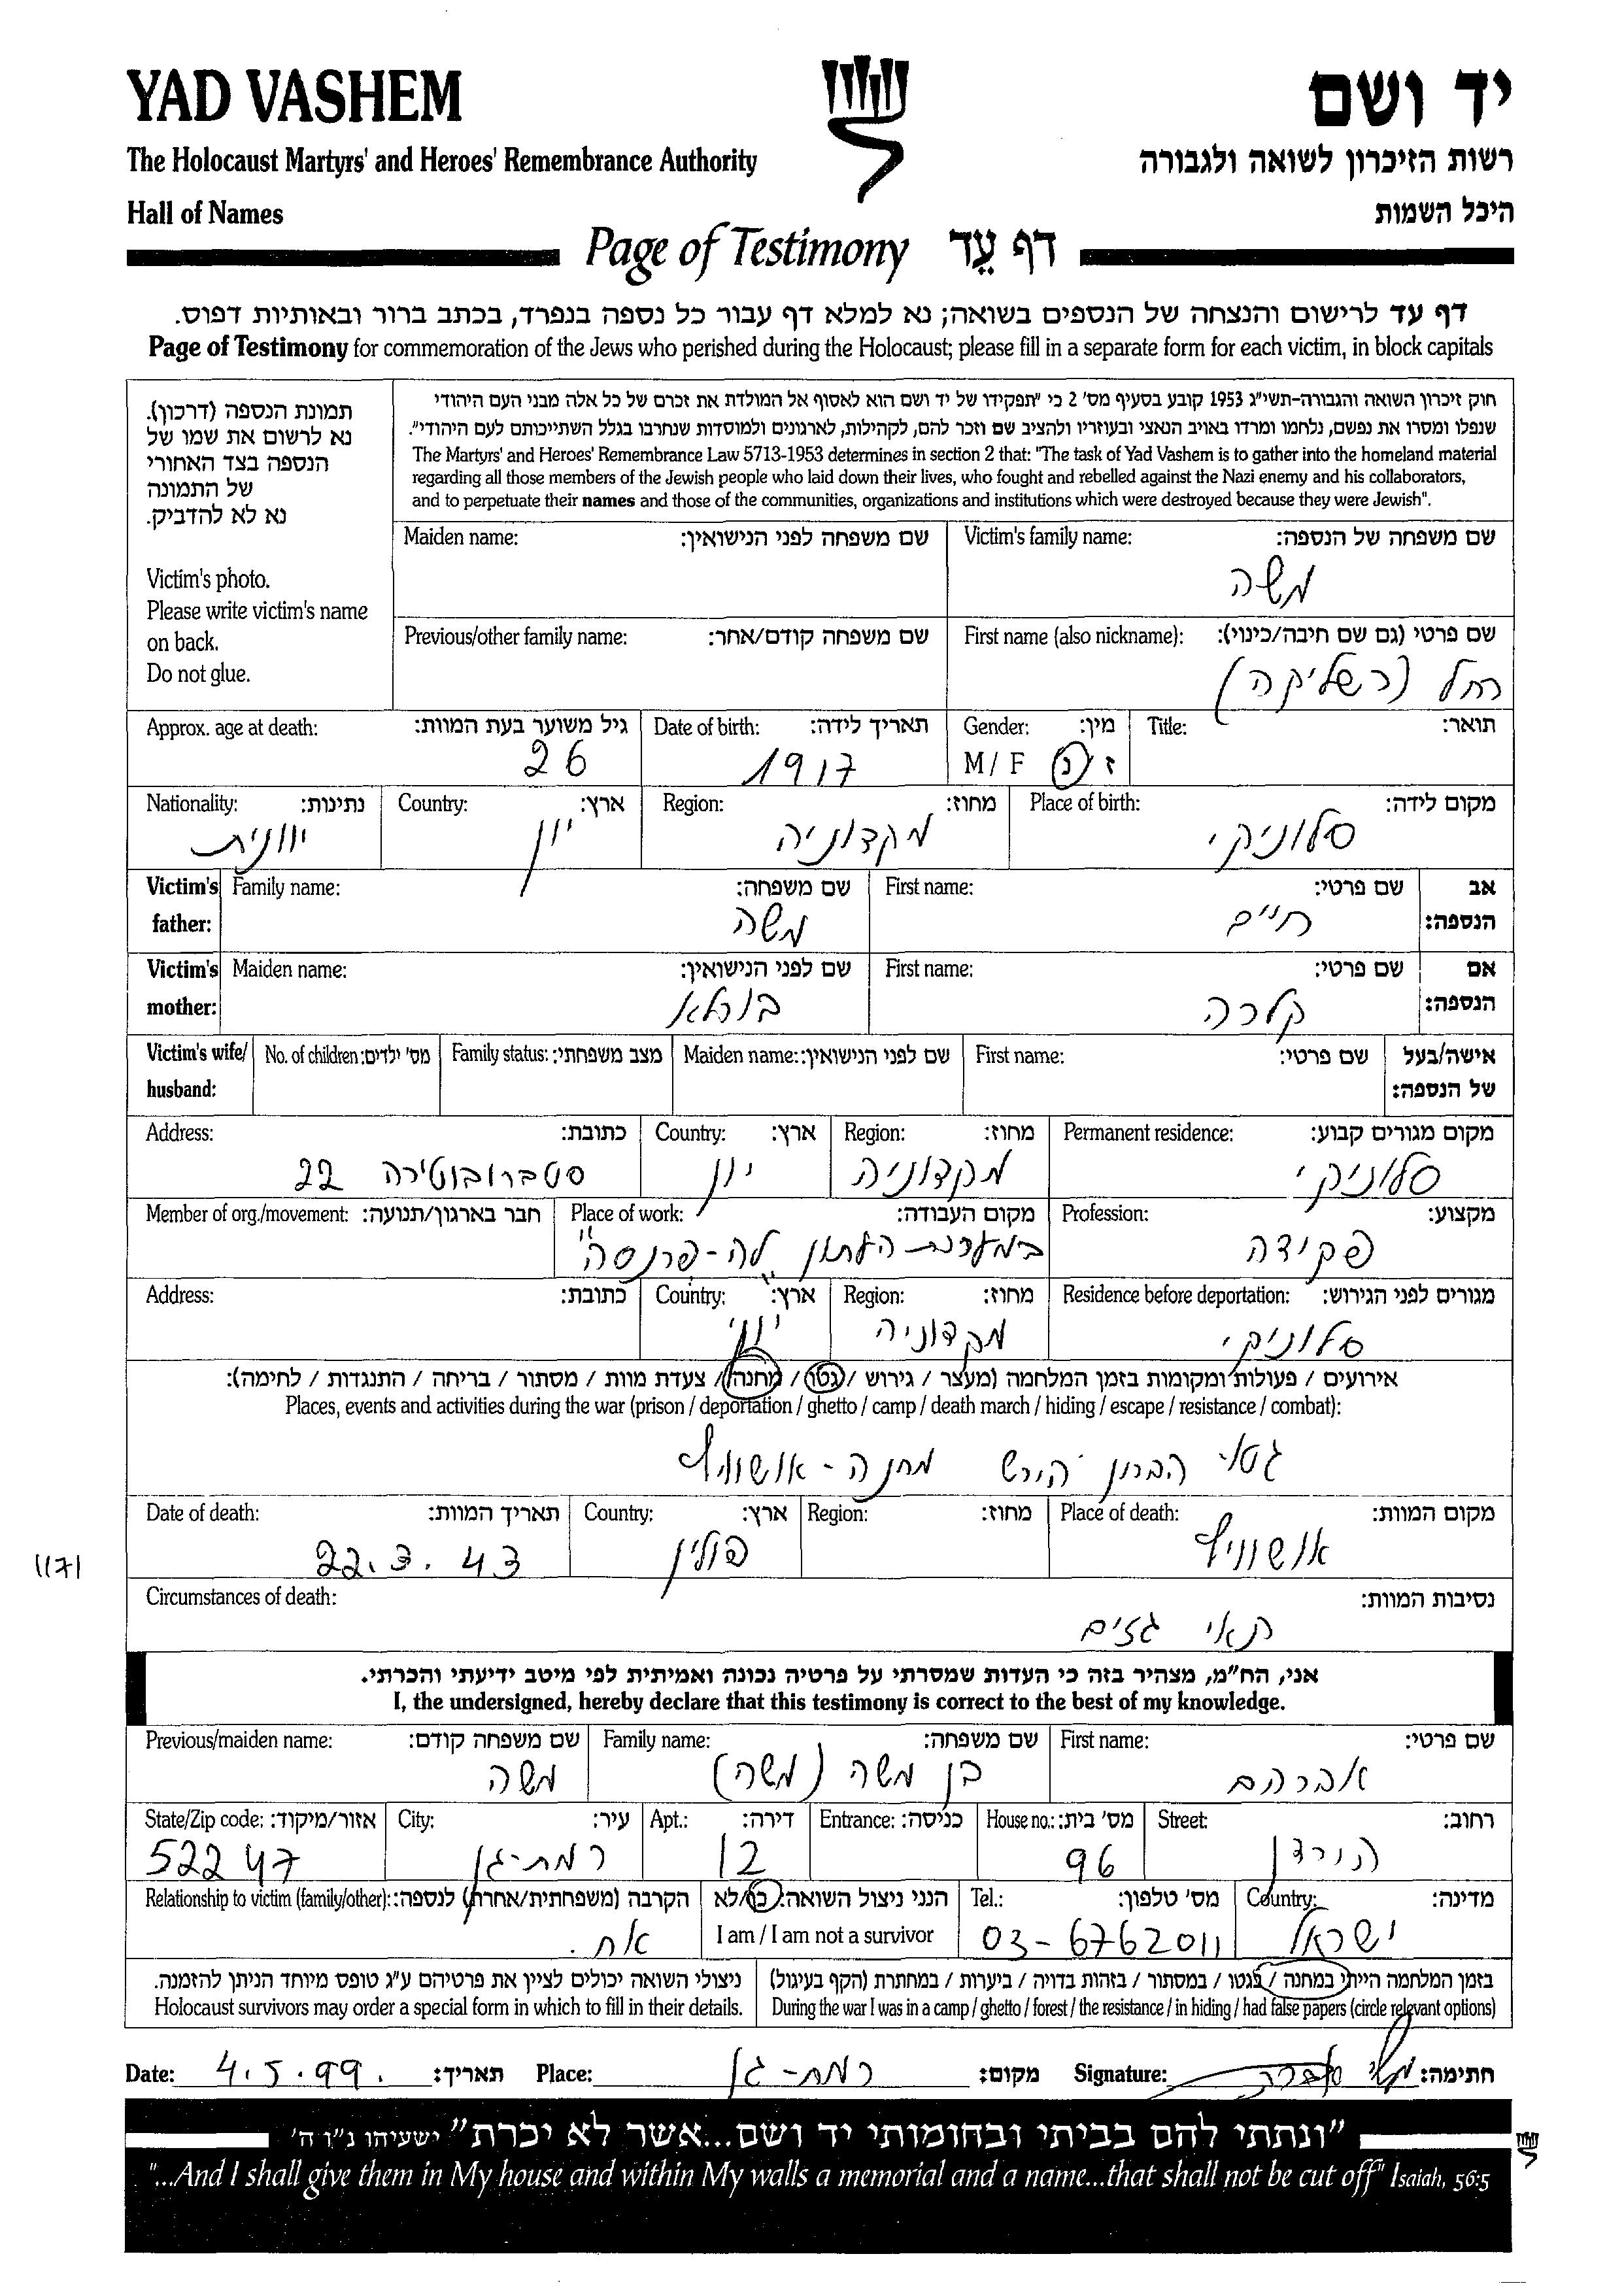 YAD VASHEM
יד ושם
The Holocaust Martyrs' and Heroes' Remembrance Authority
רשות הזיכרון לשואה ולגבורה
Hall of Names
היכל השמות
Page of Testimony דף עֵד
דף עד לרישום והנצחה של הנספים בשואה; נא למלא דף עבור כל נספה בנפרד, בכתב ברור ובאותיות דפוס.
Page of Testimony for commemoration of the Jews who perished during the Holocaust; please fill in a separate form for each victim, in block capitals
תמונת הנספה (דרכון).
נא לרשום את שמו של
הנספה בצד האחורי
של התמונה
נא לא להדביק.
Victim's photo.
Please write victim's name
on back.
Do not glue.
חוק זיכרון השואה והגבורה-תשי"ג 1953 קובע בסעיף מס' 2 כי "תפקידו של יד ושם הוא לאסוף אל המולדת את זכרם של כל אלה מבני העם היהודי
שנפלו ומסרו את נפשם, נלחמו ומרדו באויב הנאצי ובעוזריו ולהציב שם וזכר להם, לקהילות, לארגונים ולמוסדות שנחרבו בגלל השתייכותם לעם היהודי".
The Martyrs' and Heroes' Remembrance Law 5713-1953 determines in section 2 that: "The task of Yad Vashem is to gather into the homeland material
regarding all those members of the Jewish people who laid down their lives, who fought and rebelled against the Nazi enemy and his collaborators,
and to perpetuate their names and those of the communities, organizations and institutions which were destroyed because they were Jewish".
Victim's family name: שם משפחה של הנספה: Maiden name: שם משפחה לפני הנישואין:
משה
First name (also nickname): שם פרטי (גם שם חיבה/כינוי): Previous/other family name: שם משפחה קודם/אחר:
רחל (רשליקה)
Title: תואר: Gender: מין: Date of birth: תאריך לידה: Approx. age at death: גיל משוער בעת המוות:
M / F ז / נ 1917 26
Place of birth: מקום לידה: Region: מחוז: Country: ארץ: Nationality: נתינות:
סלוניקי מקדוניה יוון יוונית
אב הנספה: First name: שם פרטי: Family name: שם משפחה: Victim's father:
חיים משה
אם הנספה: First name: שם פרטי: Maiden name: שם לפני הנישואין: Victim's mother:
קלרה בורלא
אישה/בעל של הנספה: First name: שם פרטי: Maiden name: שם לפני הנישואין: Family status: מצב משפחתי: No. of children: מס' ילדים: Victim's wife/ husband:
Permanent residence: מקום מגורים קבוע: Region: מחוז: Country: ארץ: Address: כתובת:
סלוניקי מקדוניה יוון 22
Profession: מקצוע: Place of work: מקום העבודה: Member of org./movement: חבר בארגון/תנועה:
פקידה במערכת העתון "לה-פרנסה"
Residence before deportation: מגורים לפני הגירוש: Region: מחוז: Country: ארץ: Address: כתובת:
סלוניקי מקדוניה יוון
אירועים / פעולות ומקומות בזמן המלחמה (מעצר / גירוש / גטו / מחנה / צעדת מוות / מסתור / בריחה / התנגדות / לחימה):
Places, events and activities during the war (prison / deportation / ghetto / camp / death march / hiding / escape / resistance / combat):
גטו הברון הירש מחנה-אושוויץ
Place of death: מקום המוות: Region: מחוז: Country: ארץ: Date of death: תאריך המוות:
אושוויץ פולין 22.3.43
1171
Circumstances of death: נסיבות המוות:
תאי גזים
אני, הח"מ, מצהיר בזה כי העדות שמסרתי על פרטיה נכונה ואמיתית לפי מיטב ידיעתי והכרתי.
I, the undersigned, hereby declare that this testimony is correct to the best of my knowledge.
First name: שם פרטי: Family name: שם משפחה: Previous/maiden name: שם משפחה קודם:
אברהם בן משה (משה) משה
Street: רחוב: House no.: מס' בית: Entrance: כניסה: Apt.: דירה: City: עיר: State/Zip code: אזור/מיקוד:
הירדן 96 12 רמת-גן 52247
Country: מדינה: Tel.: מס' טלפון: הנני ניצול השואה: כן/לא Relationship to victim (family/other): הקרבה (משפחתית/אחרת) לנספה:
ישראל 03-6762011 I am / I am not a survivor אח.
בזמן המלחמה הייתי במחנה / בגטו / במסתור / בזהות בדויה / ביערות / במחתרת (הקף בעיגול) ניצולי השואה יכולים לציין את פרטיהם ע"ג טופס מיוחד הניתן להזמנה.
During the war I was in a camp / ghetto / forest / the resistance / in hiding / had false papers (circle relevant options) Holocaust survivors may order a special form in which to fill in their details.
Date: 4.5.99. תאריך: Place: רמת-גן מקום: Signature: חתימה:
"ונתתי להם בביתי ובחומותי יד ושם...אשר לא יכרת" ישעיהו נ"ו ה'
"...And I shall give them in My house and within My walls a memorial and a name...that shall not be cut off" Isaiah, 56:5